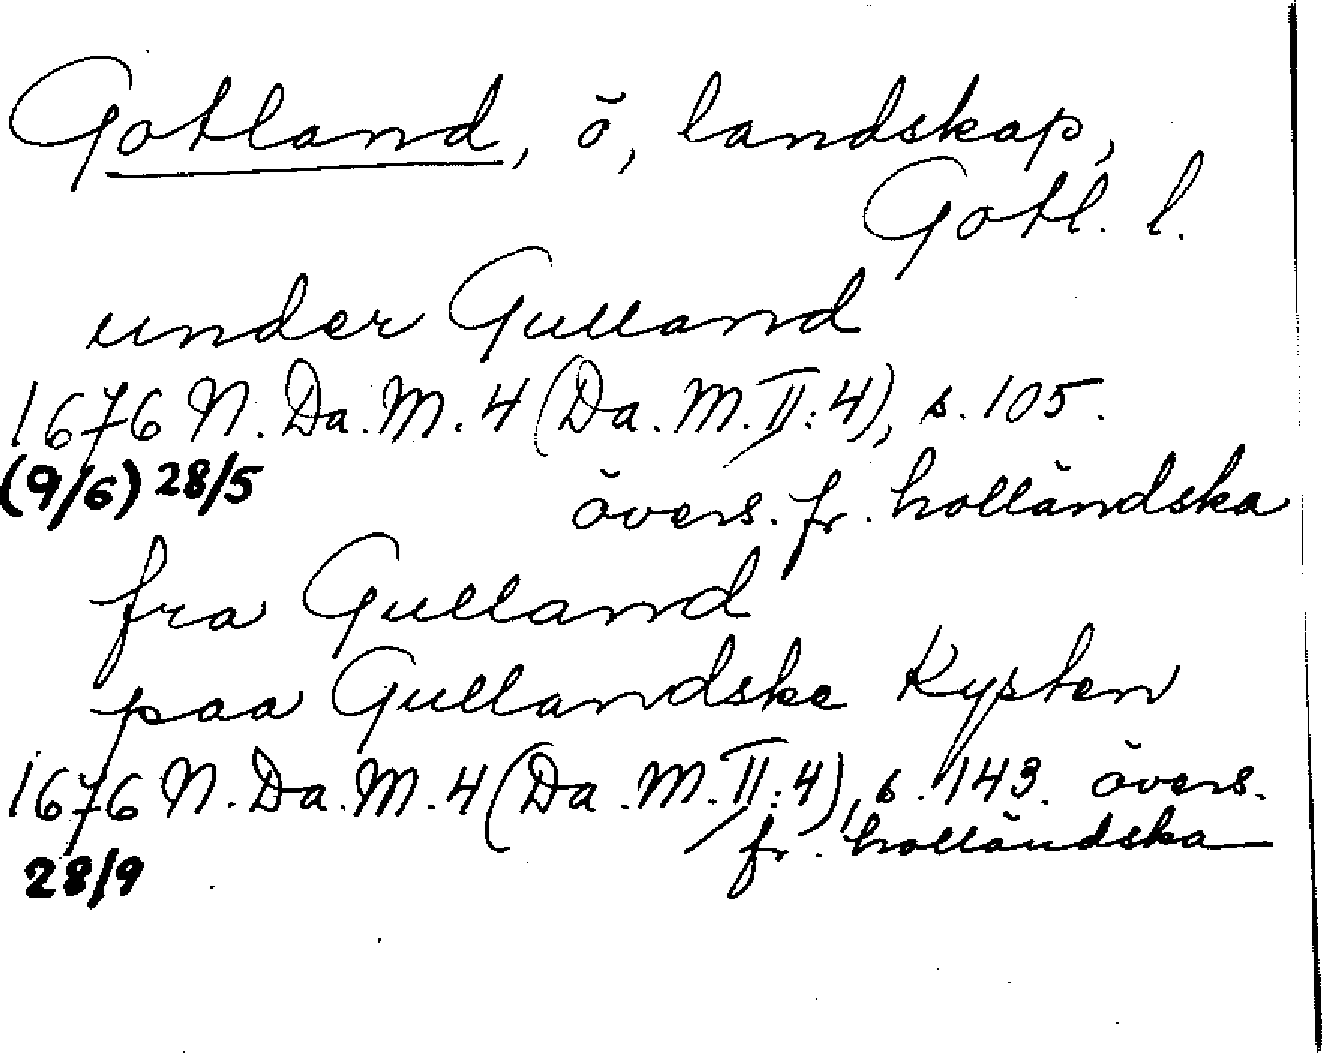 Gotland, ö, landskap,
Gotl. l.
under Gulland
1676 N. Da. M. 4 (Da. M. II: 4), s. 105.
(9/6) 28/5 övers. fr. holländska
fra Gulland
paa Gullandske Kysten
1676 N. Da. M. 4 (Da. M. II: 4), s. 143. övers.
28/9 fr. holländska